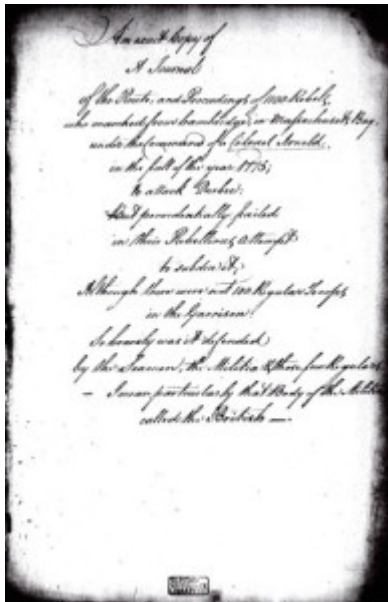 An exact Copy of
A Journal
of the Route, and Proceedings of 1100 Rebels,
who marched from Cambridge, in Massachusetts Bay,
under the Command of a Colonel Arnold,
in the fall of the year 1775;
to attack Quebec;
But providentially failed
in their Rebellious Attempt
to subdue it;
Although there were not 100 Regular Troops,
in the Garrison.
So bravely was it defended
by the Seamen, the Militia & those few Regulars
— I mean particularly that Body of the Militia
called the British —.